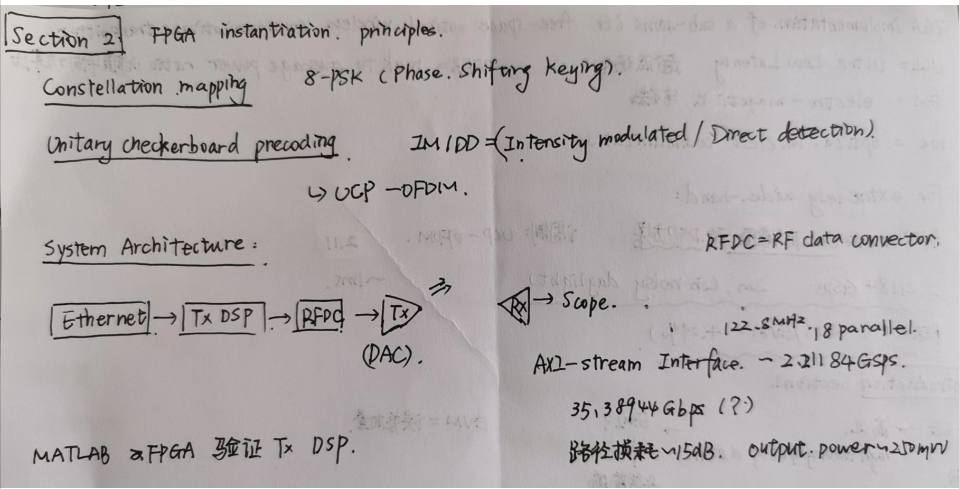 Section 2 FPGA instantiation: principles.
Constellation mapping 8-PSK (Phase. Shifting Keying).
Unitary checkerboard precoding. IM/DD=(Intensity modulated / Direct detection).
↳ UCP-OFDM.
System Architecture: RFDC=RF data convector.
Ethernet → Tx DSP → RFDC → Tx Rx → Scope.
(DAC).
122.8MHz. 18 parallel.
AXI-stream Interface. ~ 2.21184Gsps.
35.38944Gbps (?)
MATLAB FPGA 验证 Tx DSP.
路径损耗~15dB. output. power~250mW